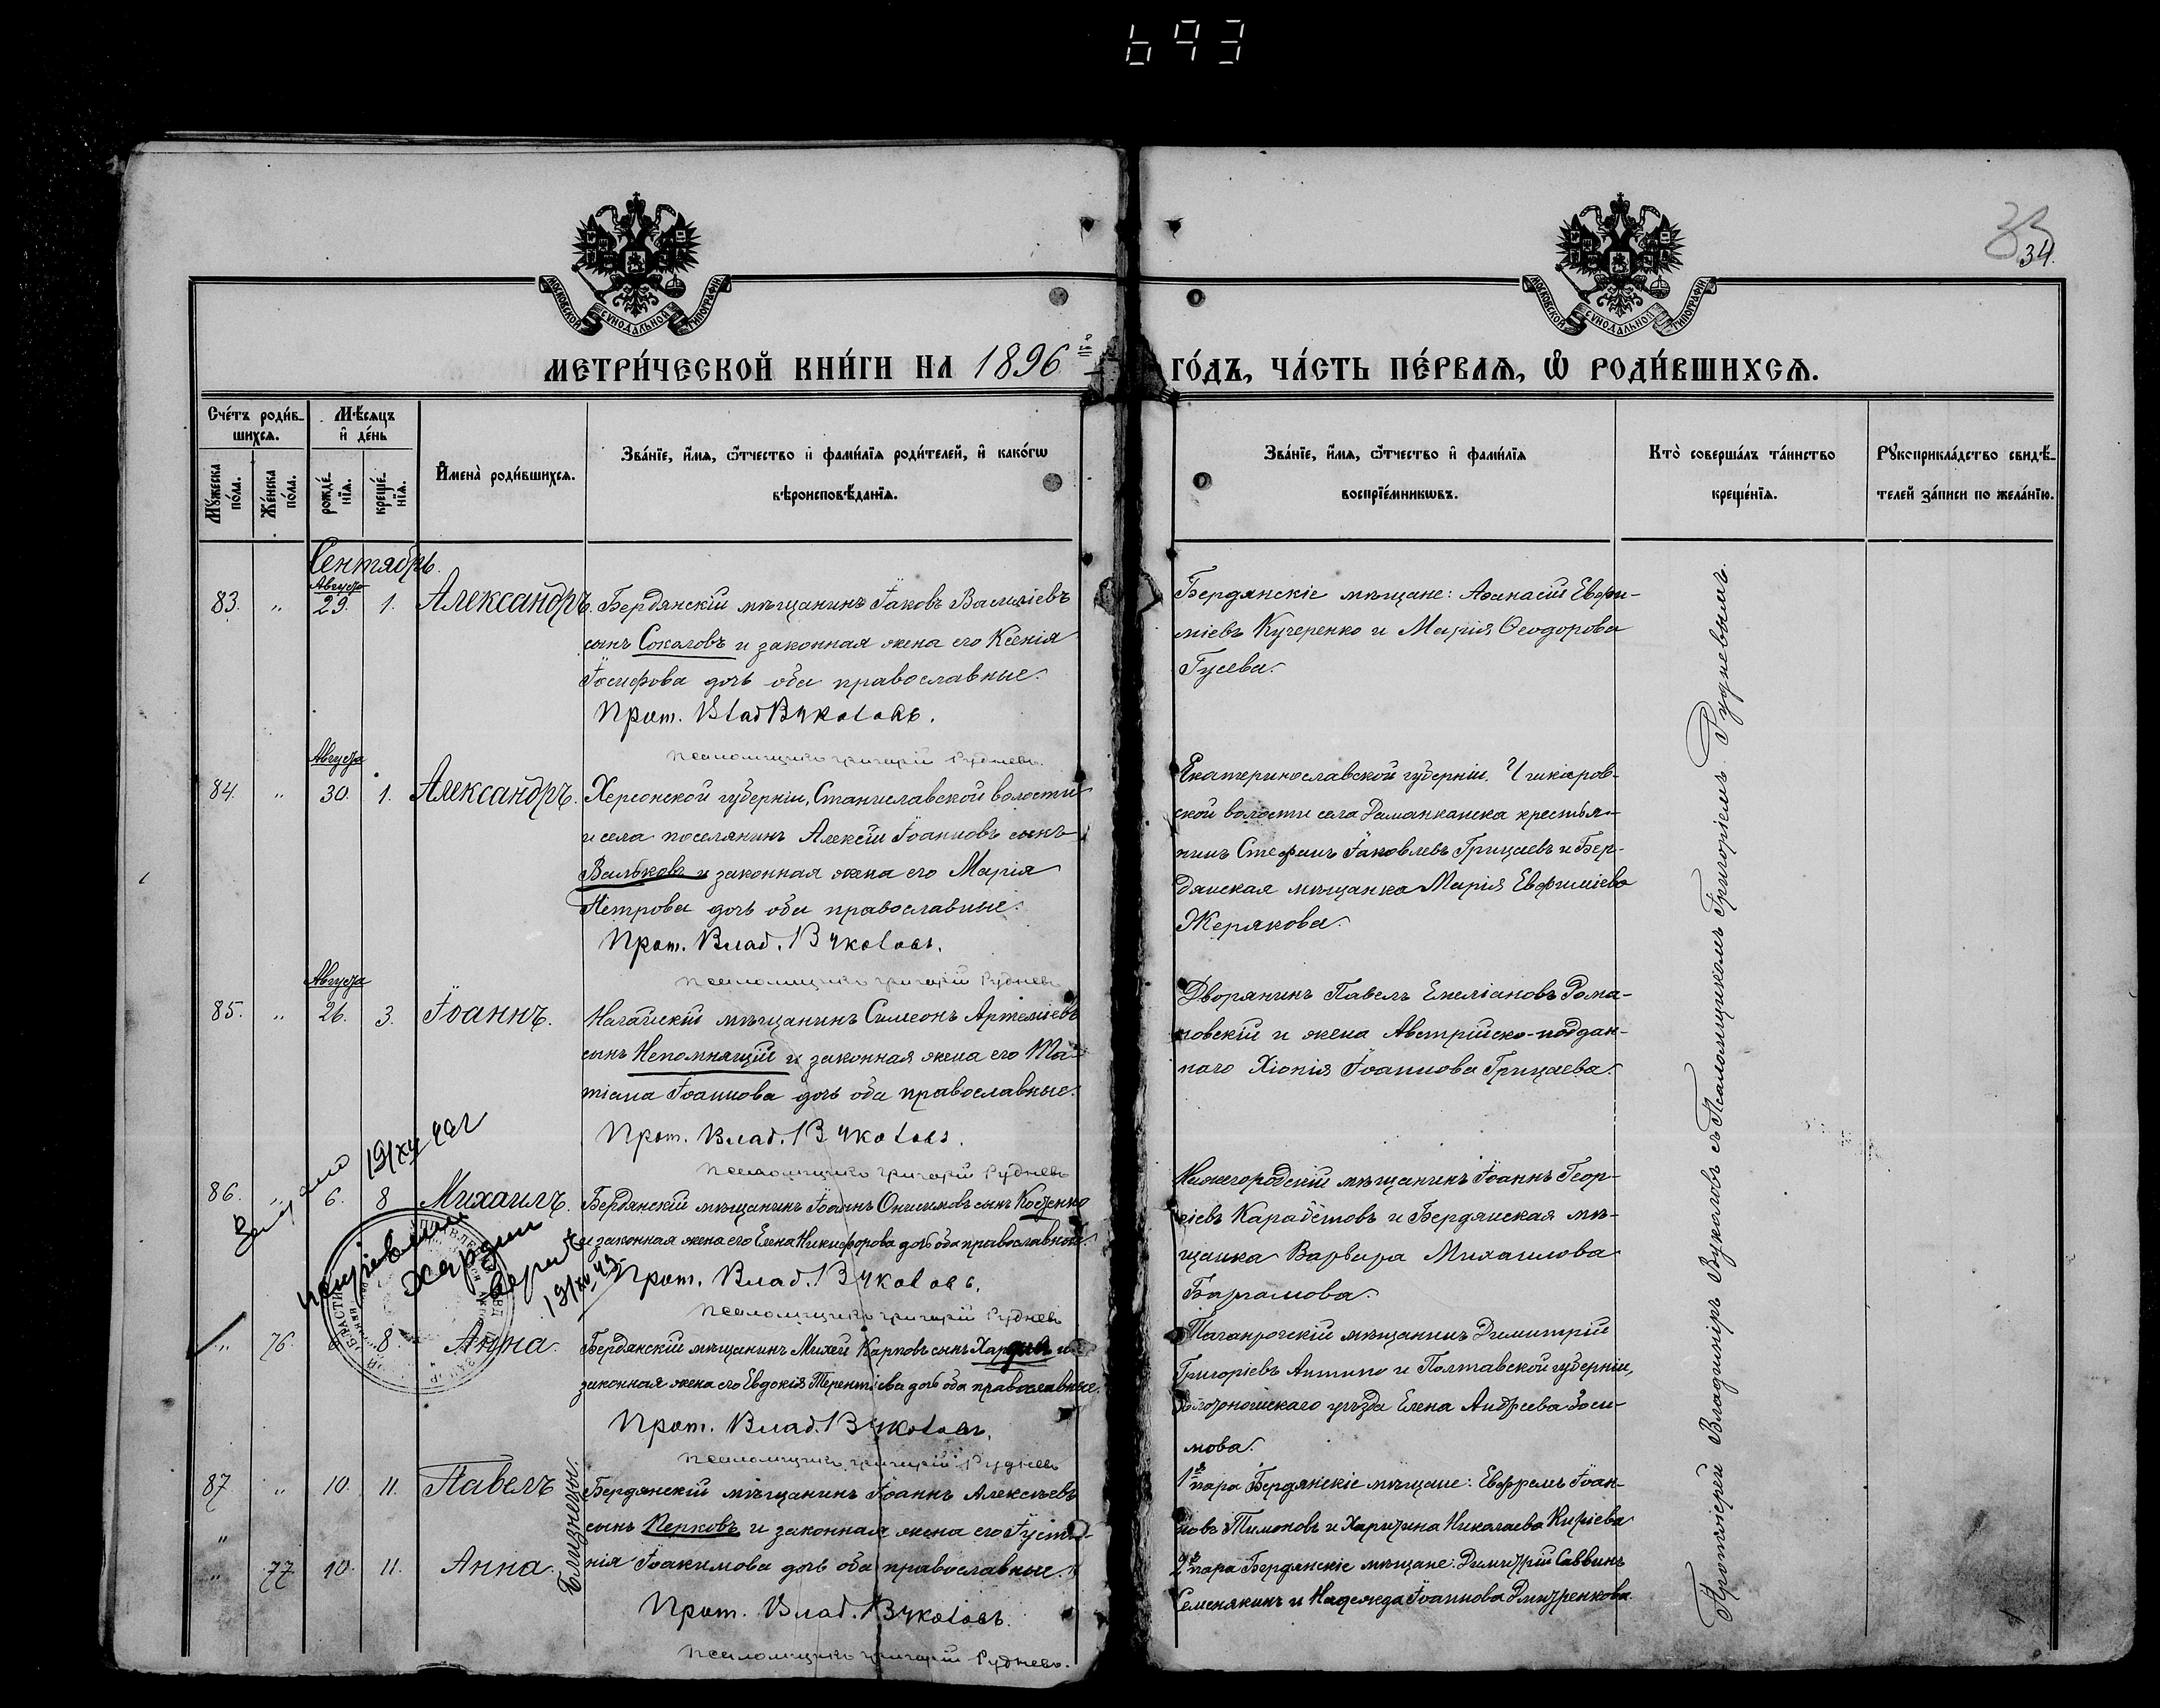 693
33
34.
МОСКОВСКОЙ СѴНОДАЛЬНОЙ ТИПОГРАФІИ
МОСКОВСКОЙ СѴНОДАЛЬНОЙ ТИПОГРАФІИ
МЕТРИ́ЧЕСКОЙ КНИ́ГИ НА 1896 й ГО́ДЪ, ЧА́СТЬ ПЕ́РВАЯ, Ѡ РОДИ́ВШИХСЯ.
Сче́тъ роди́в-
шихся.
Му́жеска по́ла.
Же́нска по́ла.
Мѣ́сяцъ
и҆ де́нь
рожде́-
нїя.
креще́-
нїя.
И҆мена̀ роди́вшихся.
Зва́нїе, и҆́мя, ѻ҆́тчество и҆ фами́лїя роди́телей, и҆ како́гѡ
вѣроисповѣ́данїя.
Зва́нїе, и҆́мя, ѻ҆́тчество и҆ фами́лїя
воспрїе́мникѡвъ.
Кто̀ соверша́лъ та́инство
креще́нїя.
Рꙋкоприкла́дство свидѣ́-
телей за́писи по жела́нїю.
Сентябрь.
Августа
83. " 29. 1. Александръ. Бердянскій мѣщанинъ Іаковъ Васильевъ
сынъ Соколовъ и законная жена его Ксенія
Іосифова дочь оба православные.
Прот. Влад. Вуколовъ.
псаломщикъ Григорій Рудневъ.
Бердянскіе мѣщане: Аѳанасій Евфи-
міевъ Кучеренко и Марія Ѳеодорова
Гусева.
Августа
84. " 30. 1. Александръ. Херсонской губерніи, Станиславской волости
и села поселянинъ Алексій Іоанновъ сынъ
Вальковъ и законная жена его Марія
Петрова дочь оба православные.
Прот. Влад. Вуколовъ.
псаломщикъ Григорій Рудневъ
Екатеринославской губерніи, Чикаров-
ской волости села крестья-
нинъ Стефанъ Іаковлевъ Грицаевъ и Бер-
дянская мѣщанка Марія Евфиміева
Жерякова.
Августа
85. " 26. 3. Іоаннъ. Ногайскій мѣщанинъ Симеонъ Артеміевъ
сынъ Непомнящій и законная жена его Та-
тіана Іоаннова дочь оба православные.
Прот. Влад. Вуколовъ.
псаломщикъ Григорій Рудневъ
Дворянинъ Павелъ Емеліановъ Рома-
новскій и жена Австрійско-поддан-
наго Хіонія Іоаннова Грицаева.
86. " 6. 8 Михаилъ. Бердянскій мѣщанинъ Іоаннъ Онисимовъ сынъ Костенко
и законная жена его Елена Никифорова дочь оба православные.
Прот. Влад. Вуколовъ.
псаломщикъ Григорій Рудневъ
Нижегородскій мѣщанинъ Іоаннъ Геор-
гіевъ Карабетовъ и Бердянская мѣ-
щанка Варвара Михаилова
" 76. 6 8. Анна. Бердянскій мѣщанинъ Михей Карповъ сынъ Хардинъ и
законная жена его Евдокія Терентіева дочь оба православные.
Прот. Влад. Вуколовъ.
псаломщикъ Григорій Рудневъ
Таганрогскій мѣщанинъ Димитрій
Григоріевъ и Полтавской губерніи,
Золотоношскаго уѣзда Елена Андреева Зоси-
мова.
87 " 10. 11. Павелъ
" 77 10. 11. Анна.
Близнецы.
Бердянскій мѣщанинъ Іоаннъ Алексѣевъ
сынъ Перковъ и законная жена его Іусти-
нія Іоакимова дочь оба православные.
Прот. Влад. Вуколовъ.
псаломщикъ Григорій Рудневъ.
1я пара Бердянскіе мѣщане: Ефремъ Іоан-
новъ Тимоновъ и Харитина Николаева Киріева
2я пара Бердянскіе мѣщане: Димитрій Саввинъ
Семенякинъ и Надежда Іоаннова Дмитренкова.
Протоіерей Владиміръ Вуколовъ съ Псаломщикомъ Григоріемъ Рудневымъ.